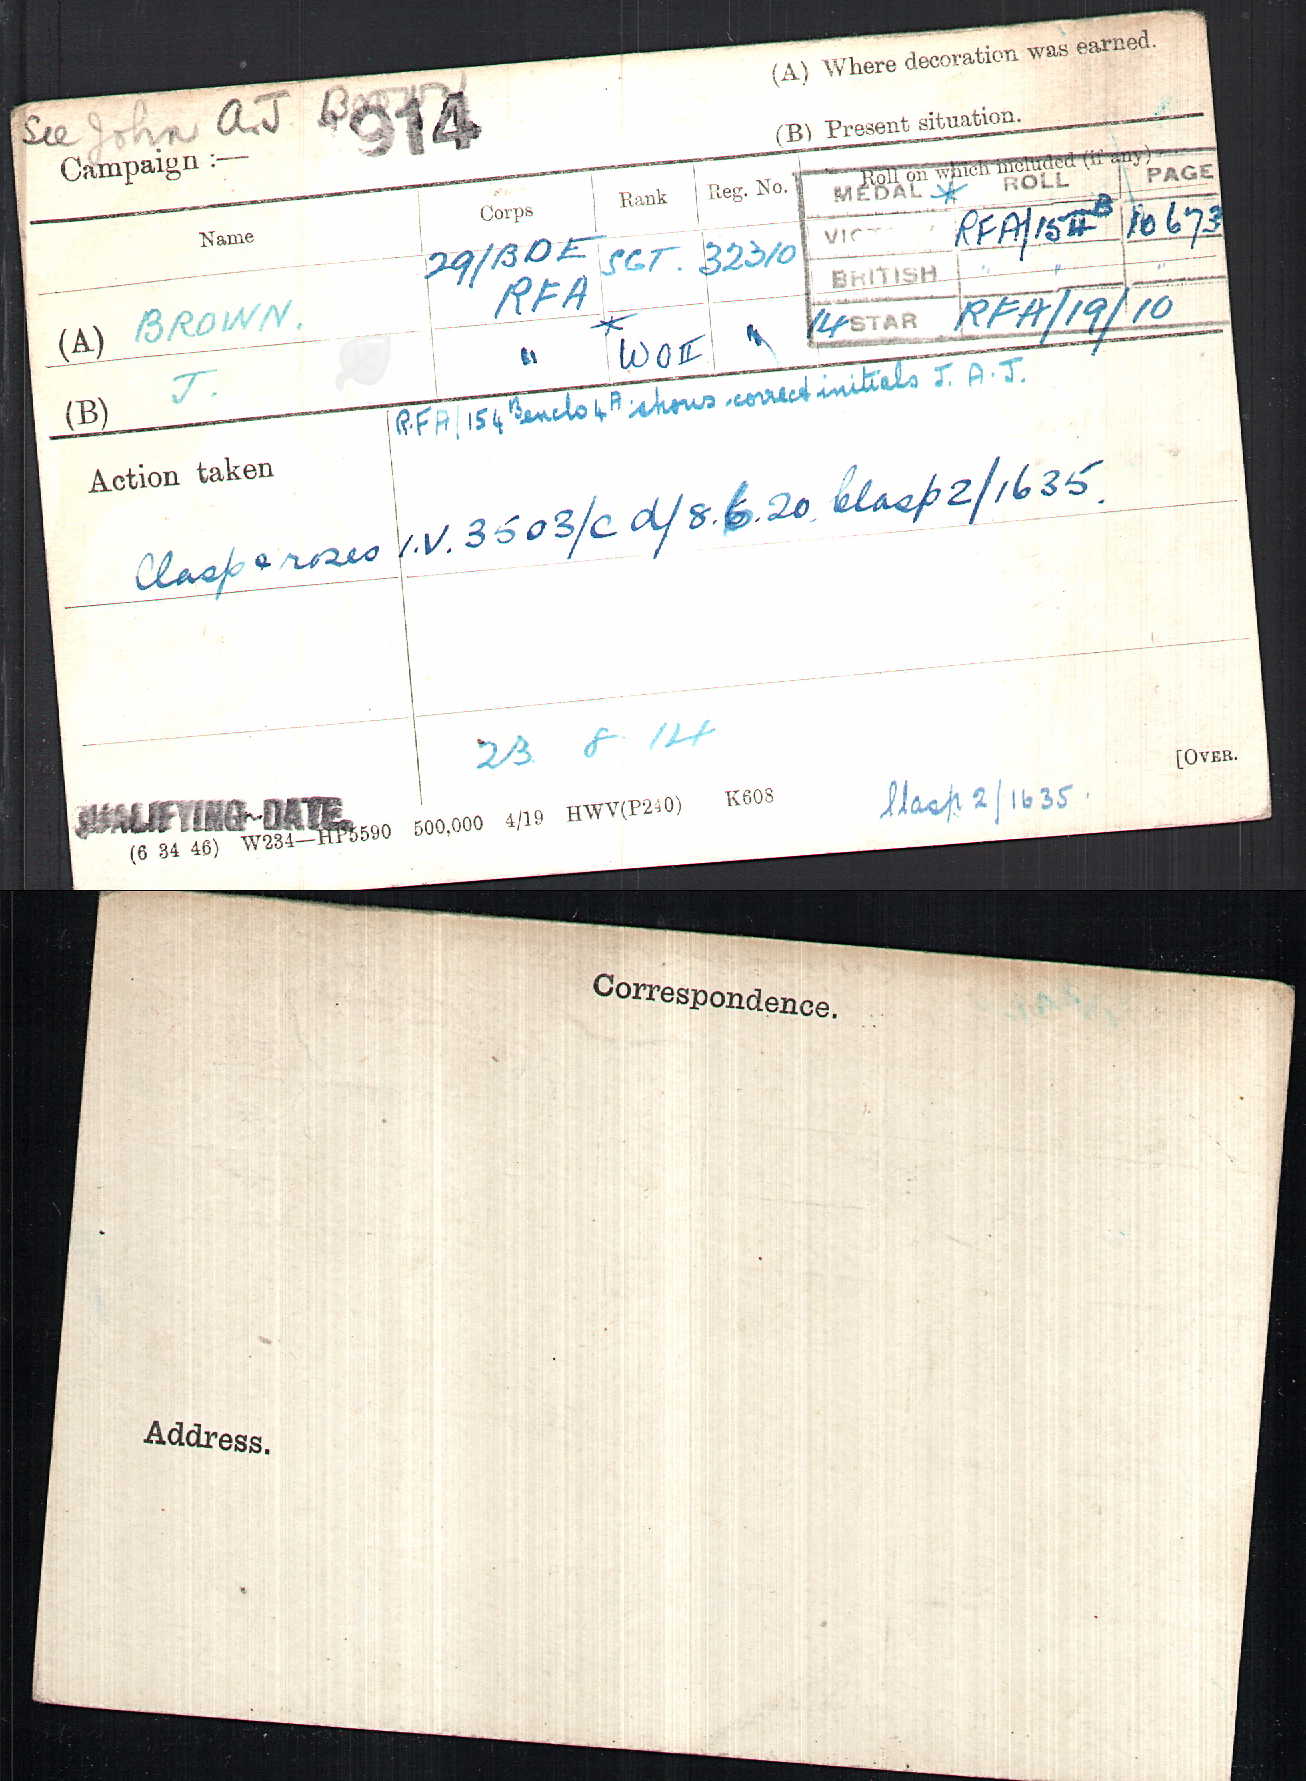 (A) Where decoration was earned.
(B) Present situation.
See John A.J. 914
Campaign :—
Name Corps Rank Reg. No. Roll on which included (if any)
MEDAL * ROLL PAGE
(A) BROWN. 29/BDE RFA SGT. 32310 RFA/154B 10673
BRITISH " " "
14 STAR RFA/19/10
(B) J. " * WOII "
RFA/154B enclo 4A shows correct initials J. A. J.
Action taken
Clasp & roses I.V. 3503/c d/8.6.20. Clasp 2/1635.
23 8 14
[OVER.
QUALIFYING DATE.
(6 34 46) W234—HP5590 500,000 4/19 HWV(P240) K608
Clasp 2/1635.
Correspondence.
Address.